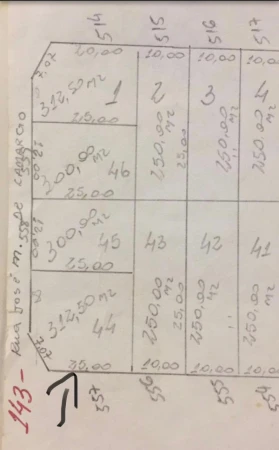 143- Rua José M. de Cadarço
514 515 516 517
20,00 10,00 10,00 10,00
7,07
312,50 m2 1 2 3 4
25,00
250,00 m2 25,00
250,00 m2
250,00 m2
12,00
300,00 m2 46
25,00
12,00
300,00 m2 45 43 42 41
25,00
8
312,50 m2 44
250,00 m2 25,00
250,00 m2
250,00 m2
7,07
25,00 10,00 10,00 10,00
557 556 555 554
558